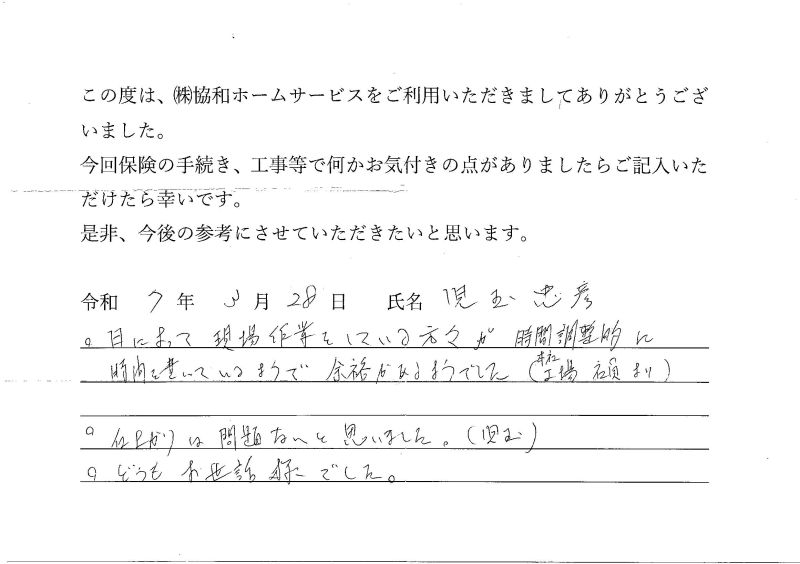 この度は、㈱協和ホームサービスをご利用いただきましてありがとうござ
いました。
今回保険の手続き、工事等で何かお気付きの点がありましたらご記入いた
だけたら幸いです。
是非、今後の参考にさせていただきたいと思います。
令和 7 年 3 月 28 日 氏名 児玉 忠彦
○ 日によって 現場作業をしている方々が 時間調整的に
時間を置いているようで 余裕があるようでした (本社 工場 社員より)
○ 仕上がりは問題ないと思いました。(児玉)
○ どうもお世話様でした。